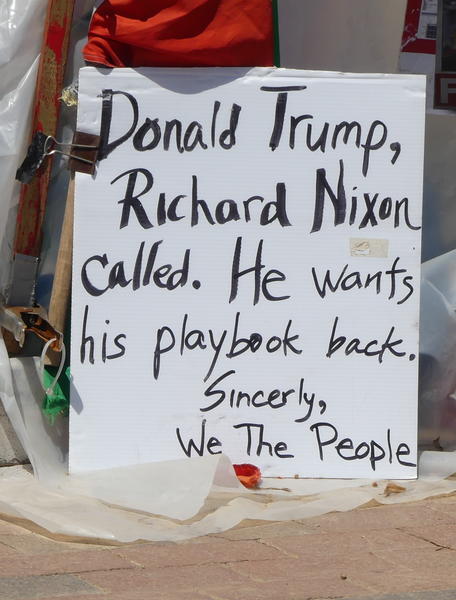 Donald Trump,
Richard Nixon
called. He wants
his playbook back.
Sincerly,
We The People